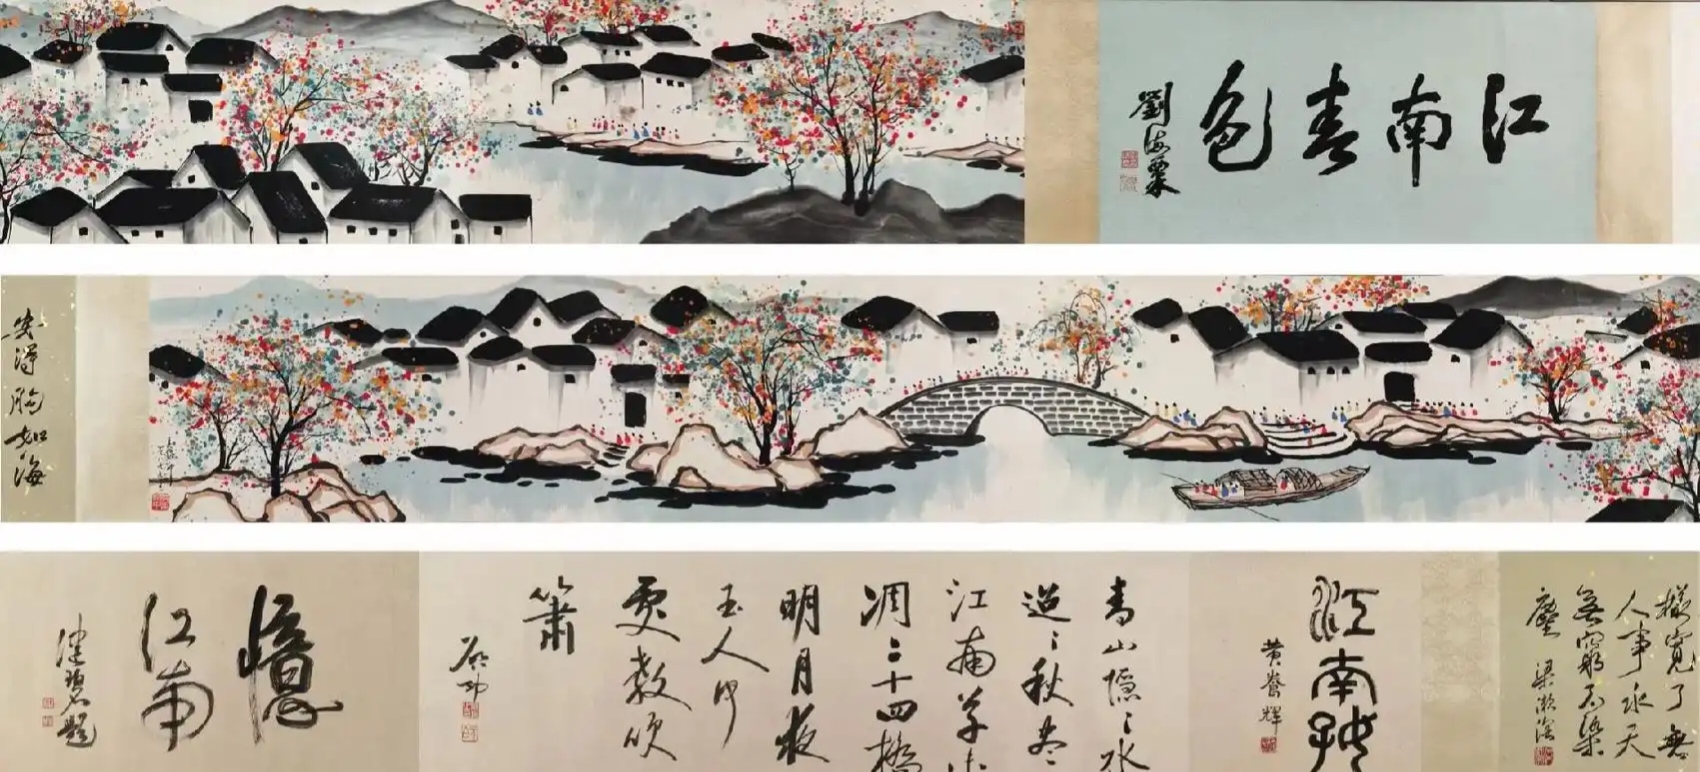 江南春色
劉海粟
安得胸如海
寬了無
人事水天
無窮不染
塵
梁漱溟
江南
黄養輝
青山隱〻水
迢〻秋盡
江南草未
凋二十四橋
明月夜
玉人何
處教吹
簫
启功
憶
江南
健碧題